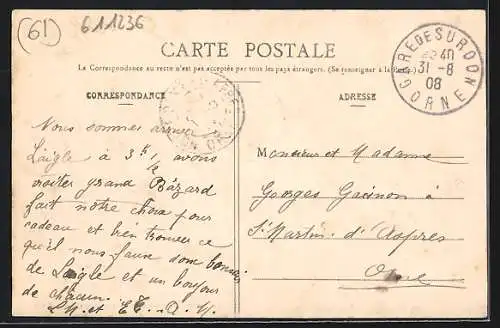 (61)
611236
CARTE POSTALE
La Correspondance au recto n'est pas acceptée par tous les pays étrangers. (Se renseigner à la Poste)
CORRESPONDANCE
ADRESSE
GARE DE SURDON
31-8
08
ORNE
Nous sommes arrivés
Laigle à 3h avons
visiter grand Bézard
fait notre choix pour
cadeau et bien trouver ce
qu'il nous faut
de Laigle et un bonjour
de chacun.
Monsieur et Madame
Georges
St Martin d'Aspres
Orne